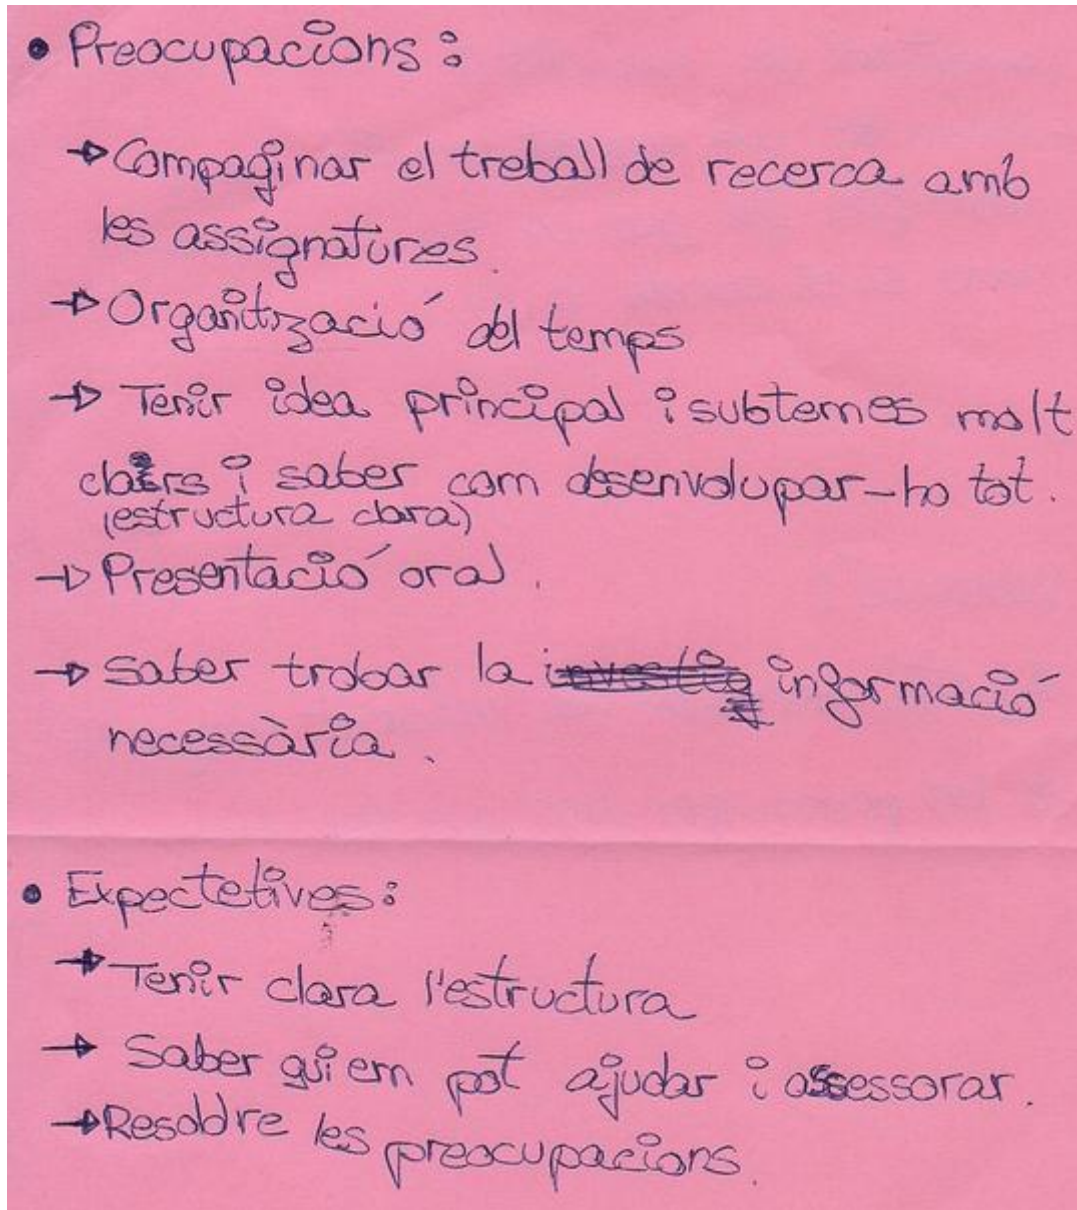 • Preocupacions:
→ Compaginar el treball de recerca amb
les assignatures.
→ Organització del temps
→ Tenir idea principal i subtemes molt
clars i saber com desenvolupar-ho tot.
(estructura clara)
→ Presentació oral.
→ saber trobar la informació
necessària.
• Expectetives:
→ Tenir clara l'estructura
→ Saber qui em pot ajudar i assessorar.
→ Resoldre les preocupacions.